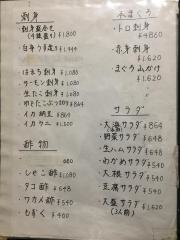 刺身
・刺身盛合せ
(4種盛り) ¥1,800
・白身うす造り ¥1,944
・ほたち刺身 ¥1,080
・サーモン刺身 ¥1,080
・生たこ刺身 ¥1,080
・イカ納豆 ¥864
・イカウニ
酢物
680
・しゃこ酢 ¥1,080
・タコ酢 ¥648
・ワカメ酢 ¥540
・もずく ¥400
本まぐろ
・トロ刺身
¥4,860
・赤身刺身
¥1,620
・まぐろ山かけ
¥1,620
サラダ
・大海サラダ ¥864
・野菜サラダ ¥648
・生ハムサラダ ¥648
・わかめサラダ ¥540
・大根サラダ ¥540
・豆腐サラダ ¥540
・大盛サラダ ¥1,620
(3人前)